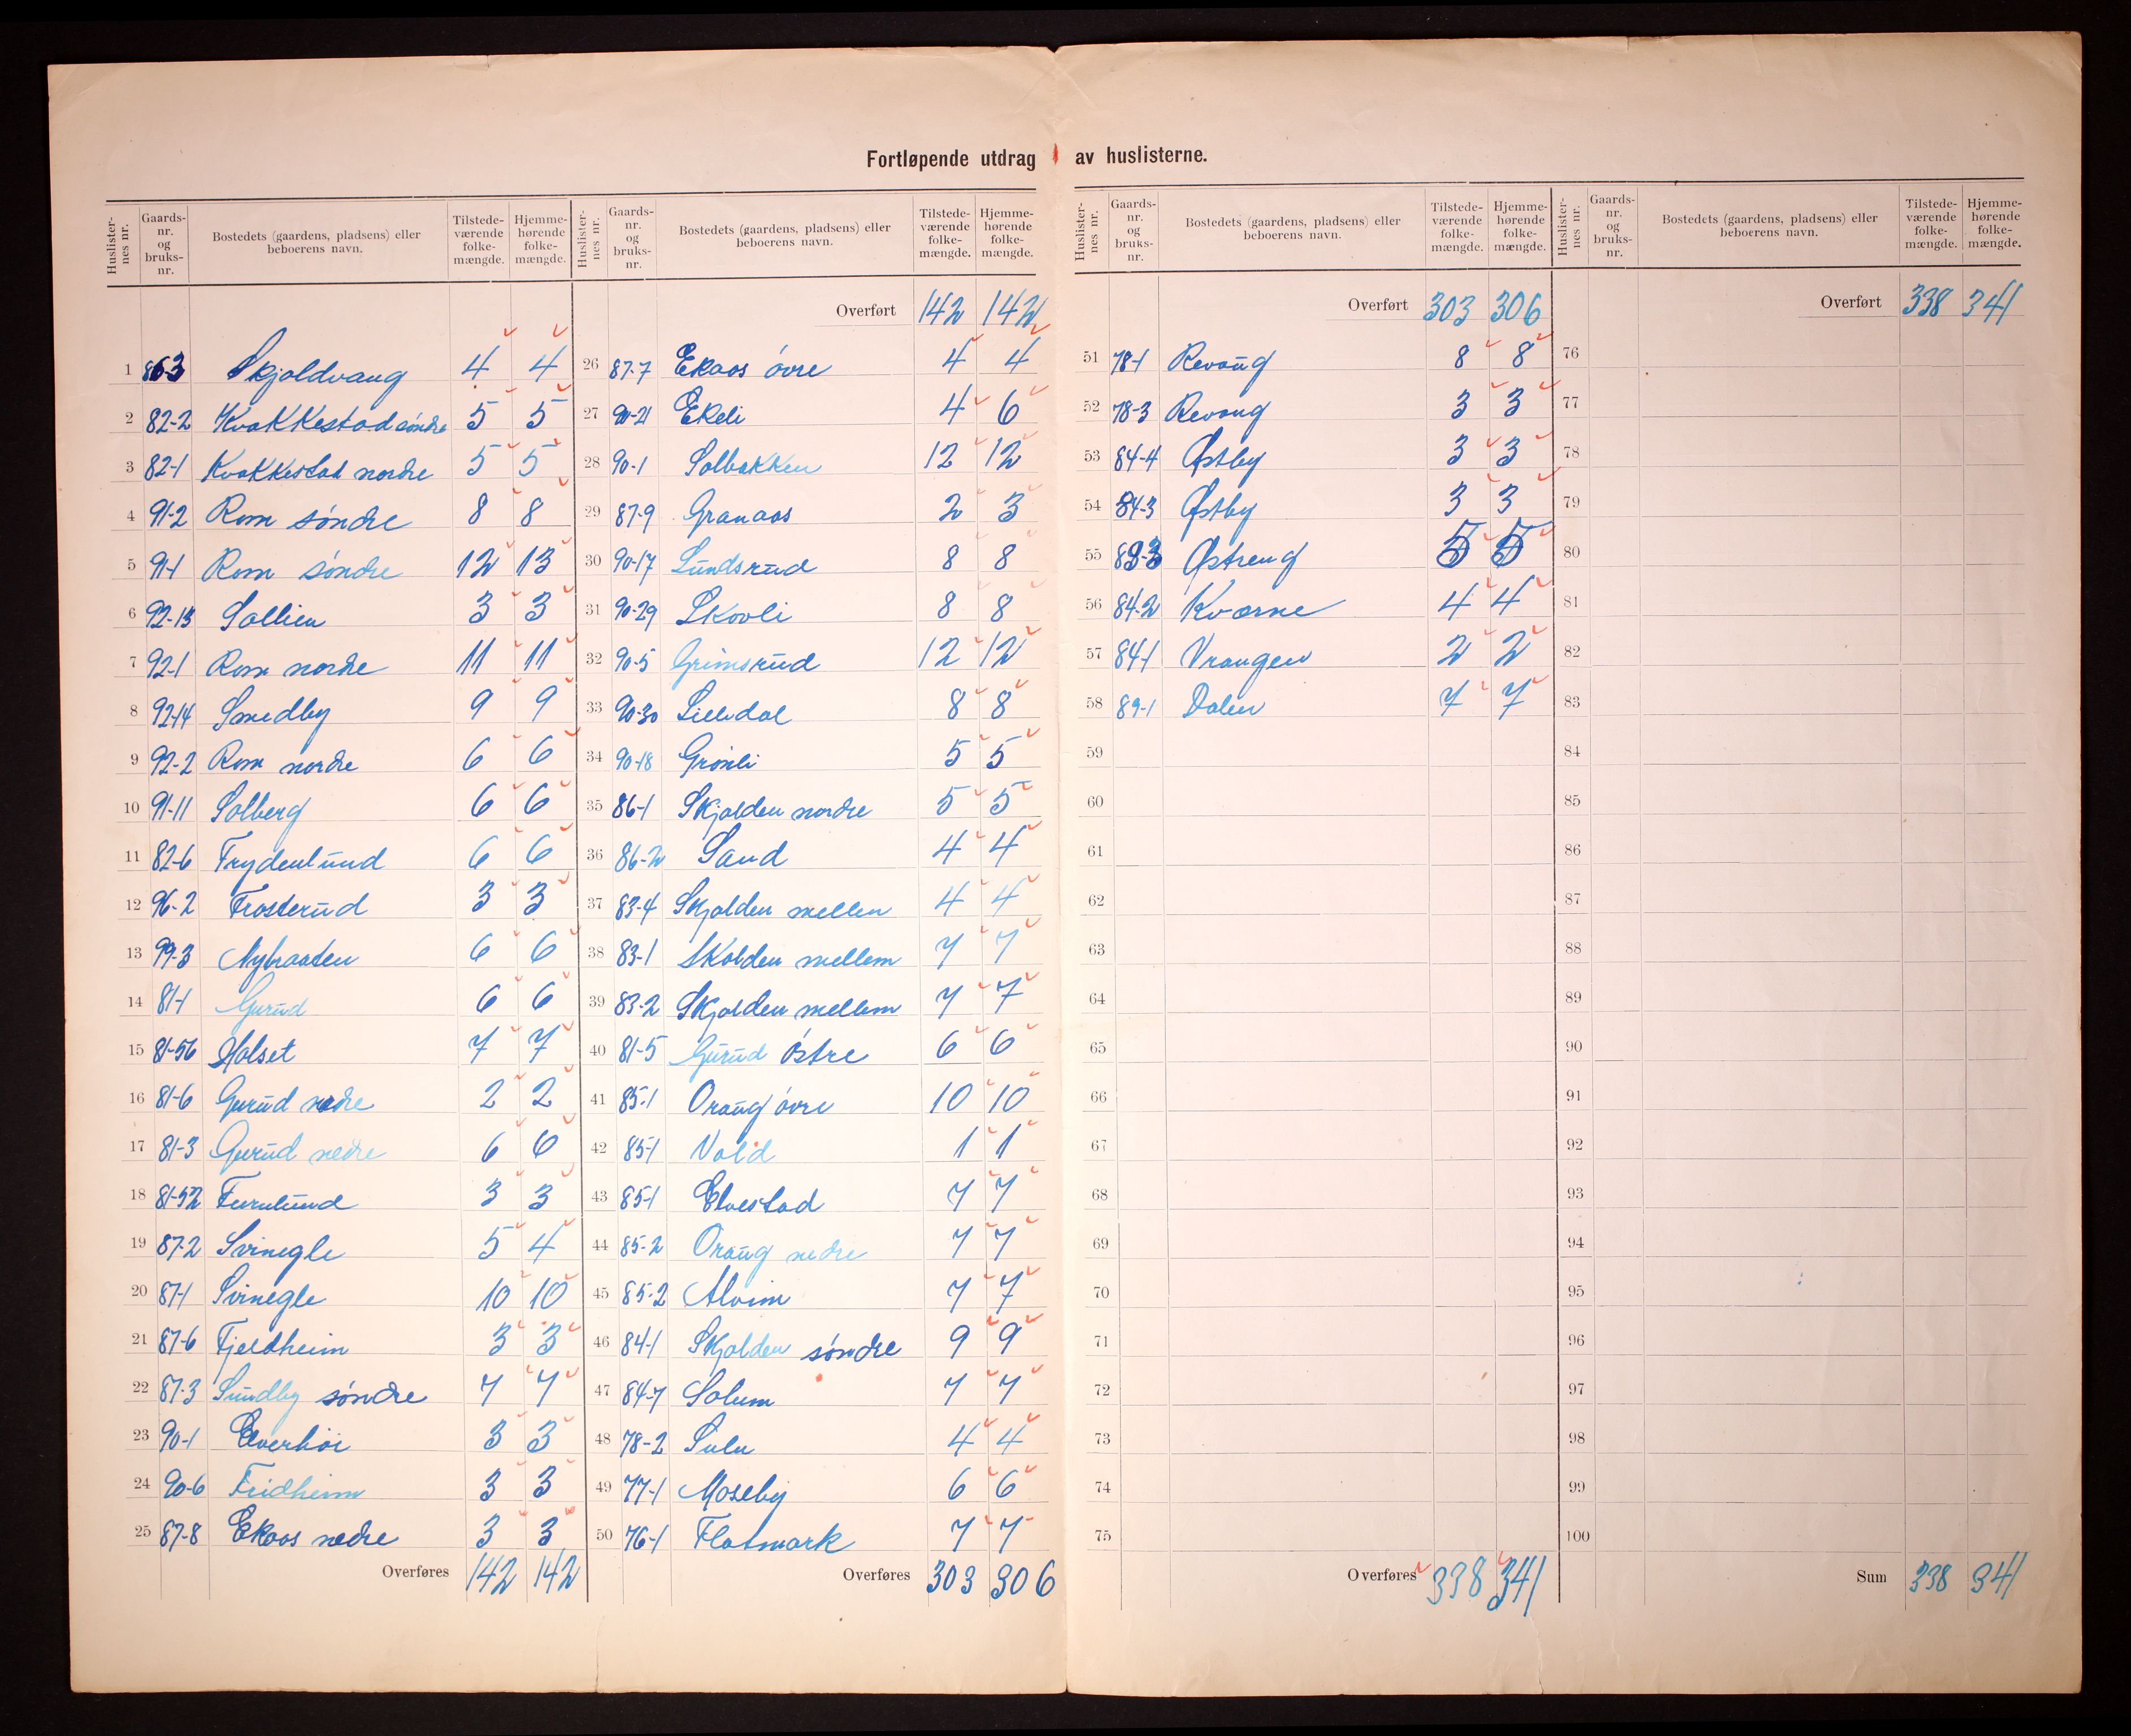 Fortløpende utdrag av huslisterne.
Huslisternes nr. Gaards-nr. og bruks-nr. Bostedets (gaardens, pladsens) eller beboerens navn. Tilstedeværende folkemængde. Hjemmehørende folkemængde.
1 86-3 Skjoldvang 4 4
2 82-2 Kvakkestad söndre 5 5
3 82-1 Kvakkestad nordre 5 5
4 91-2 Rom söndre 8 8
5 91-1 Rom söndre 12 13
6 92-13 Sollien 3 3
7 92-1 Rom nordre 11 11
8 92-14 Smedby 9 9
9 92-2 Rom nordre 6 6
10 91-11 Solberg 6 6
11 82-6 Frydenlund 6 6
12 96-2 Frosterud 3 3
13 99-3 Nybraaten 6 6
14 81-1 Gurud 6 6
15 81-56 Holset 7 7
16 81-6 Gurud nedre 2 2
17 81-3 Gurud nedre 6 6
18 81-52 Furulund 3 3
19 87-2 Svinegle 5 4
20 87-1 Svinegle 10 10
21 87-6 Fjeldheim 3 3
22 87-3 Sundby söndre 7 7
23 90-1 Elverhöi 3 3
24 90-6 Fridheim 3 3
25 87-8 Ekaos nedre 3 3
Overføres 142 142
Huslisternes nr. Gaards-nr. og bruks-nr. Bostedets (gaardens, pladsens) eller beboerens navn. Tilstedeværende folkemængde. Hjemmehørende folkemængde.
Overført 142 142
26 87-7 Ekaos övre 4 4
27 90-21 Ekeli 4 6
28 90-1 Solbakken 12 12
29 87-9 Granaos 2 3
30 90-17 Lundsrud 8 8
31 90-29 Skovli 8 8
32 90-5 Grimsrud 12 12
33 90-30 Lilledal 8 8
34 90-18 Grönli 5 5
35 86-1 Skjolden nordre 5 5
36 86-2 Sand 4 4
37 83-4 Skjolden mellem 4 4
38 83-1 Skolden mellem 7 7
39 83-2 Skjolden mellem 7 7
40 81-5 Gurud östre 6 6
41 85-1 Oraug övre 10 10
42 85-1 Vold 1 1
43 85-1 Elvestad 7 7
44 85-2 Oraug nedre 7 7
45 85-2 Alvim 7 7
46 84-1 Skjolden söndre 9 9
47 84-7 Solum 7 7
48 78-2 Sulu 4 4
49 77-1 Moseby 6 6
50 76-1 Flatmark 7 7
Overføres 303 306
Huslisternes nr. Gaards-nr. og bruks-nr. Bostedets (gaardens, pladsens) eller beboerens navn. Tilstedeværende folkemængde. Hjemmehørende folkemængde.
Overført 303 306
51 78-1 Revaug 8 8
52 78-3 Revaug 3 3
53 84-4 Østby 3 3
54 84-3 Østby 3 3
55 Østreng 5 5
56 84-2 Kværne 4 4
57 84-1 Vrangen 2 2
58 89-1 Dalen 7 7
59
60
61
62
63
64
65
66
67
68
69
70
71
72
73
74
75
Overføres 338 341
Huslisternes nr. Gaards-nr. og bruks-nr. Bostedets (gaardens, pladsens) eller beboerens navn. Tilstedeværende folkemængde. Hjemmehørende folkemængde.
Overført 338 341
76
77
78
79
80
81
82
83
84
85
86
87
88
89
90
91
92
93
94
95
96
97
98
99
100
Sum 338 341